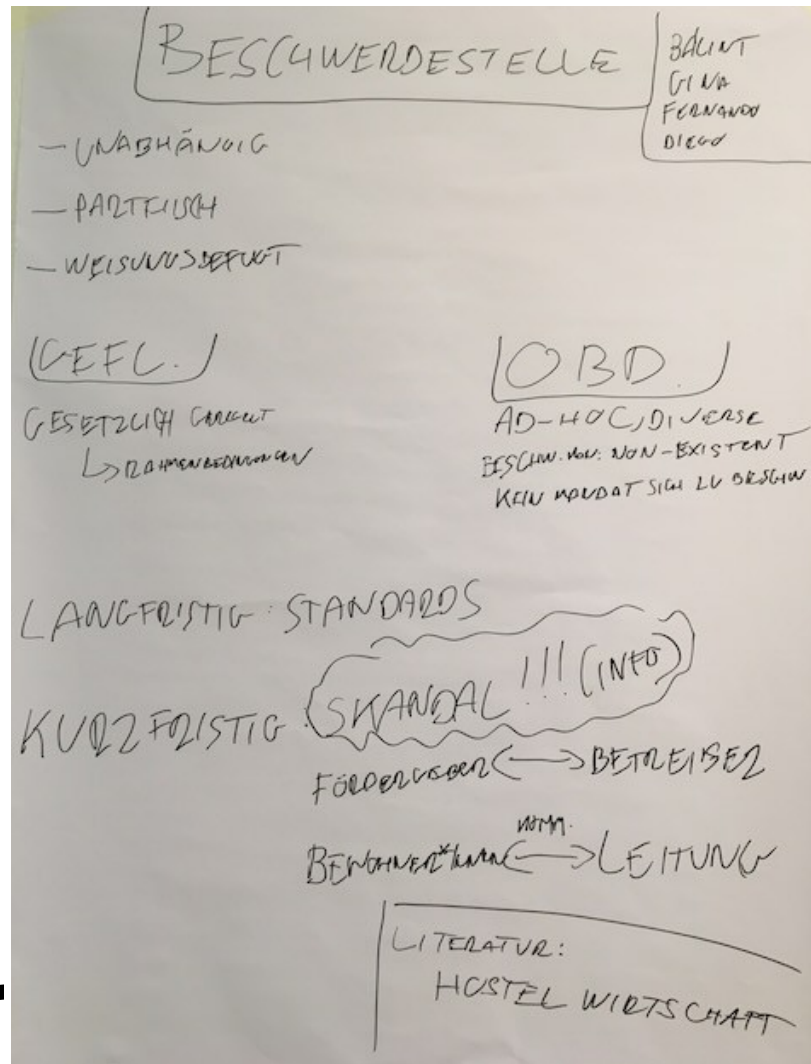 BESCHWERDESTELLE
BÁLINT
GINA
FERNANDO
DIEGO
– UNABHÄNGIG
– PARTEIISCH
– WEISUNGSBEFUGT
GEFL.
GESETZLICH
↳ RAHMENBEDINGUNGEN
OBD.
AD-HOC, DIVERSE
BESCHW. : NON-EXISTENT
KEIN MANDAT SICH ZU BESCHW
LANGFRISTIG: STANDARDS
KURZFRISTIG: SKANDAL!!! (INFO)
FÖRDERGEBER ⟷ BETREIBER
KOMM.
BEWOHNER*INNEN ⟷ LEITUNG
LITERATUR:
HOSTEL WIRTSCHAFT